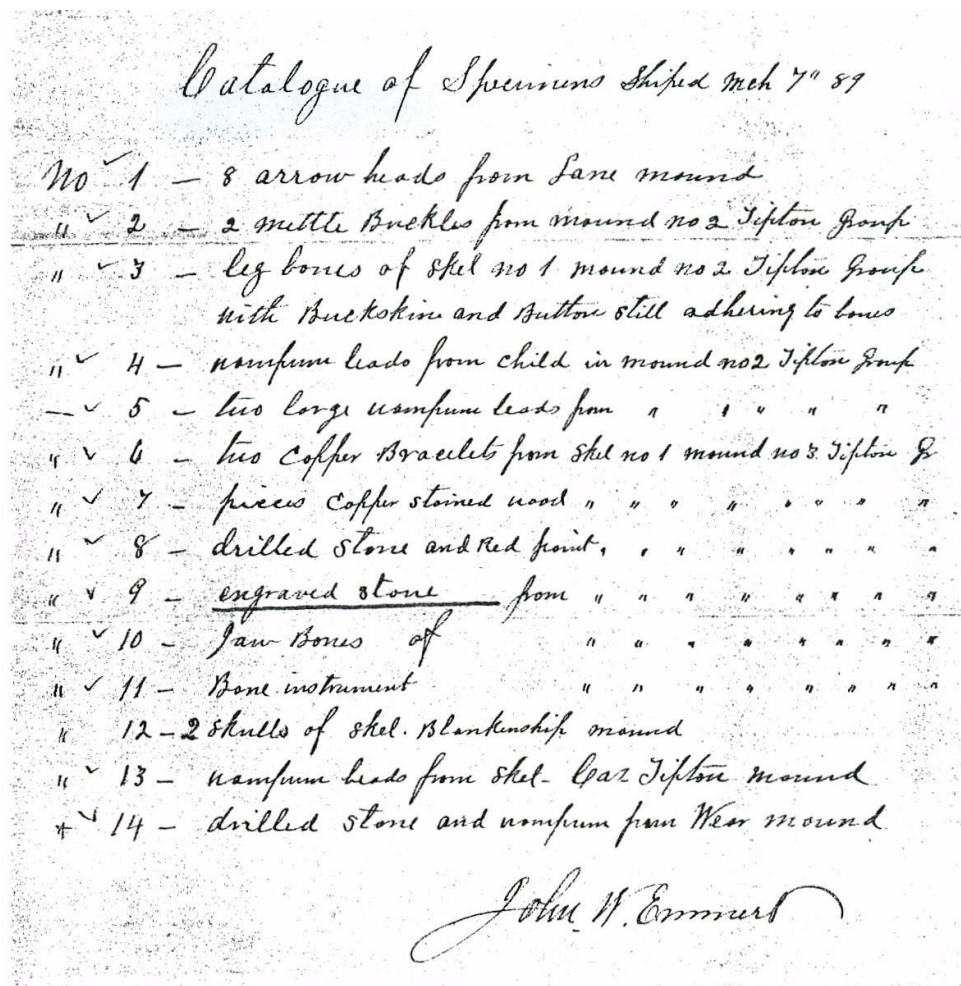 Catalogue of Specimens Shiped Mch 7" 89
No ✓ 1 — 8 arrow heads from Lane mound
" ✓ 2 — 2 mettle Buckles from mound no 2 Tipton Group
" ✓ 3 — leg bones of skel no 1 mound no 2 Tipton Group
with Buckskin and Button still adhering to bones
" ✓ 4 — wampum beads from child in mound no 2 Tipton Group
— ✓ 5 — two large wampum beads from " " " " "
" ✓ 6 — two copper Bracelets from skel no 1 mound no 3 Tipton Gr
" ✓ 7 — pieces copper stained wood " " " " " " " "
" ✓ 8 — drilled stone and Red paint " " " " " " " "
" ✓ 9 — engraved stone from " " " " " " " "
" ✓ 10 — Jaw Bones of " " " " " " " "
" ✓ 11 — Bone instrument " " " " " " " "
" 12 — 2 skulls of skel. Blankenship mound
" ✓ 13 — wampum beads from skel — Caz Tipton mound
" ✓ 14 — drilled stone and wampum from Wear mound
John W. Emmert